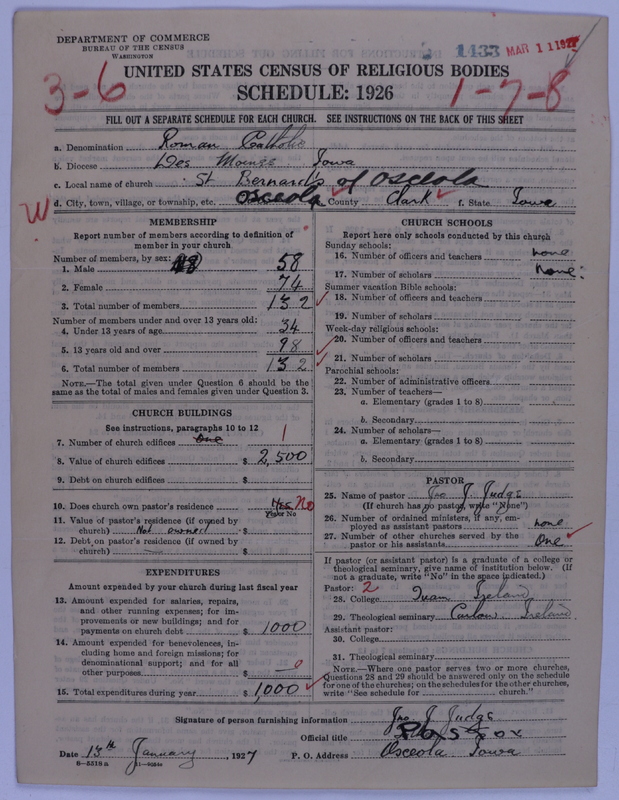 DEPARTMENT OF COMMERCE
BUREAU OF THE CENSUS
WASHINGTON
1433 MAR 11 1927
3-6
1-7-8
UNITED STATES CENSUS OF RELIGIOUS BODIES
SCHEDULE: 1926
FILL OUT A SEPARATE SCHEDULE FOR EACH CHURCH. SEE INSTRUCTIONS ON THE BACK OF THIS SHEET
a. Denomination Roman Catholic
b. Diocese Des Moines Iowa
c. Local name of church St Bernard's of Osceola
W d. City, town, village, or township, etc. Osceola County Clark f. State Iowa
MEMBERSHIP
Report number of members according to definition of
member in your church
Number of members, by sex:
1. Male 58
2. Female 74
3. Total number of members 132
Number of members under and over 13 years old:
4. Under 13 years of age 34
5. 13 years old and over 98
6. Total number of members 132
NOTE.—The total given under Question 6 should be the
same as the total of males and females given under Question 3.
CHURCH BUILDINGS
See instructions, paragraphs 10 to 12
7. Number of church edifices One 1
8. Value of church edifices $ 2,500
9. Debt on church edifices $
10. Does church own pastor's residence Yes No
Yes or No
11. Value of pastor's residence (if owned by
church) Not owned $
12. Debt on pastor's residence (if owned by
church) $
EXPENDITURES
Amount expended by your church during last fiscal year
13. Amount expended for salaries, repairs,
and other running expenses; for im-
provements or new buildings; and for
payments on church debt $ 1000
14. Amount expended for benevolences, in-
cluding home and foreign missions; for
denominational support; and for all
other purposes $ 0
15. Total expenditures during year $ 1,000
CHURCH SCHOOLS
Report here only schools conducted by this church
Sunday schools:
16. Number of officers and teachers none
17. Number of scholars None
Summer vacation Bible schools:
18. Number of officers and teachers
19. Number of scholars
Week-day religious schools:
20. Number of officers and teachers
21. Number of scholars
Parochial schools:
22. Number of administrative officers
23. Number of teachers—
a. Elementary (grades 1 to 8)
b. Secondary
24. Number of scholars—
a. Elementary (grades 1 to 8)
b. Secondary
PASTOR
25. Name of pastor Jno J. Judge
(If church has no pastor, write "None")
26. Number of ordained ministers, if any, em-
ployed as assistant pastors none
27. Number of other churches served by the
pastor or his assistants One
If pastor (or assistant pastor) is a graduate of a college or
theological seminary, give name of institution below. (If
not a graduate, write "No" in the space indicated.)
Pastor: 2
28. College Tuam Ireland
29. Theological seminary Carlow Ireland
Assistant pastor:
30. College
31. Theological seminary
NOTE.—Where one pastor serves two or more churches,
Questions 28 and 29 should be answered only on the schedule
for one of the churches; on the schedules for the other churches,
write "See schedule for church."
Signature of person furnishing information Jno J Judge
Official title Pastor
Date 13th January, 1927 P. O. Address Osceola Iowa